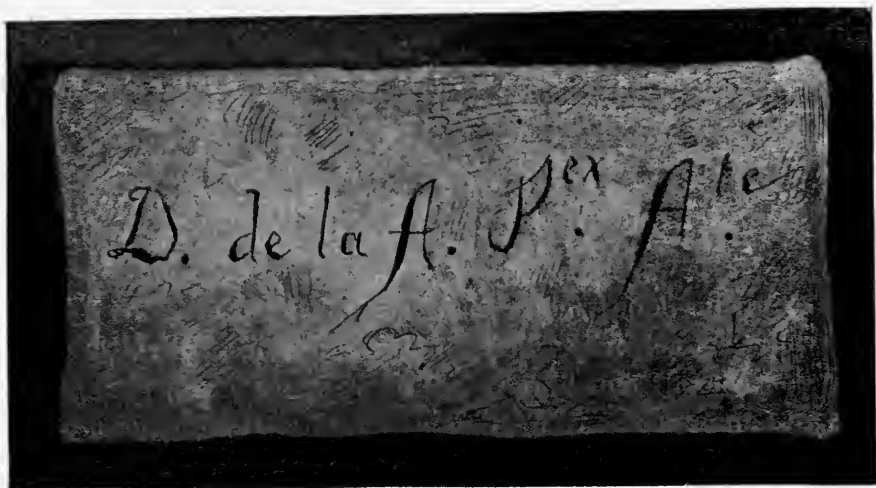 D. de la A. Pex. Ate.